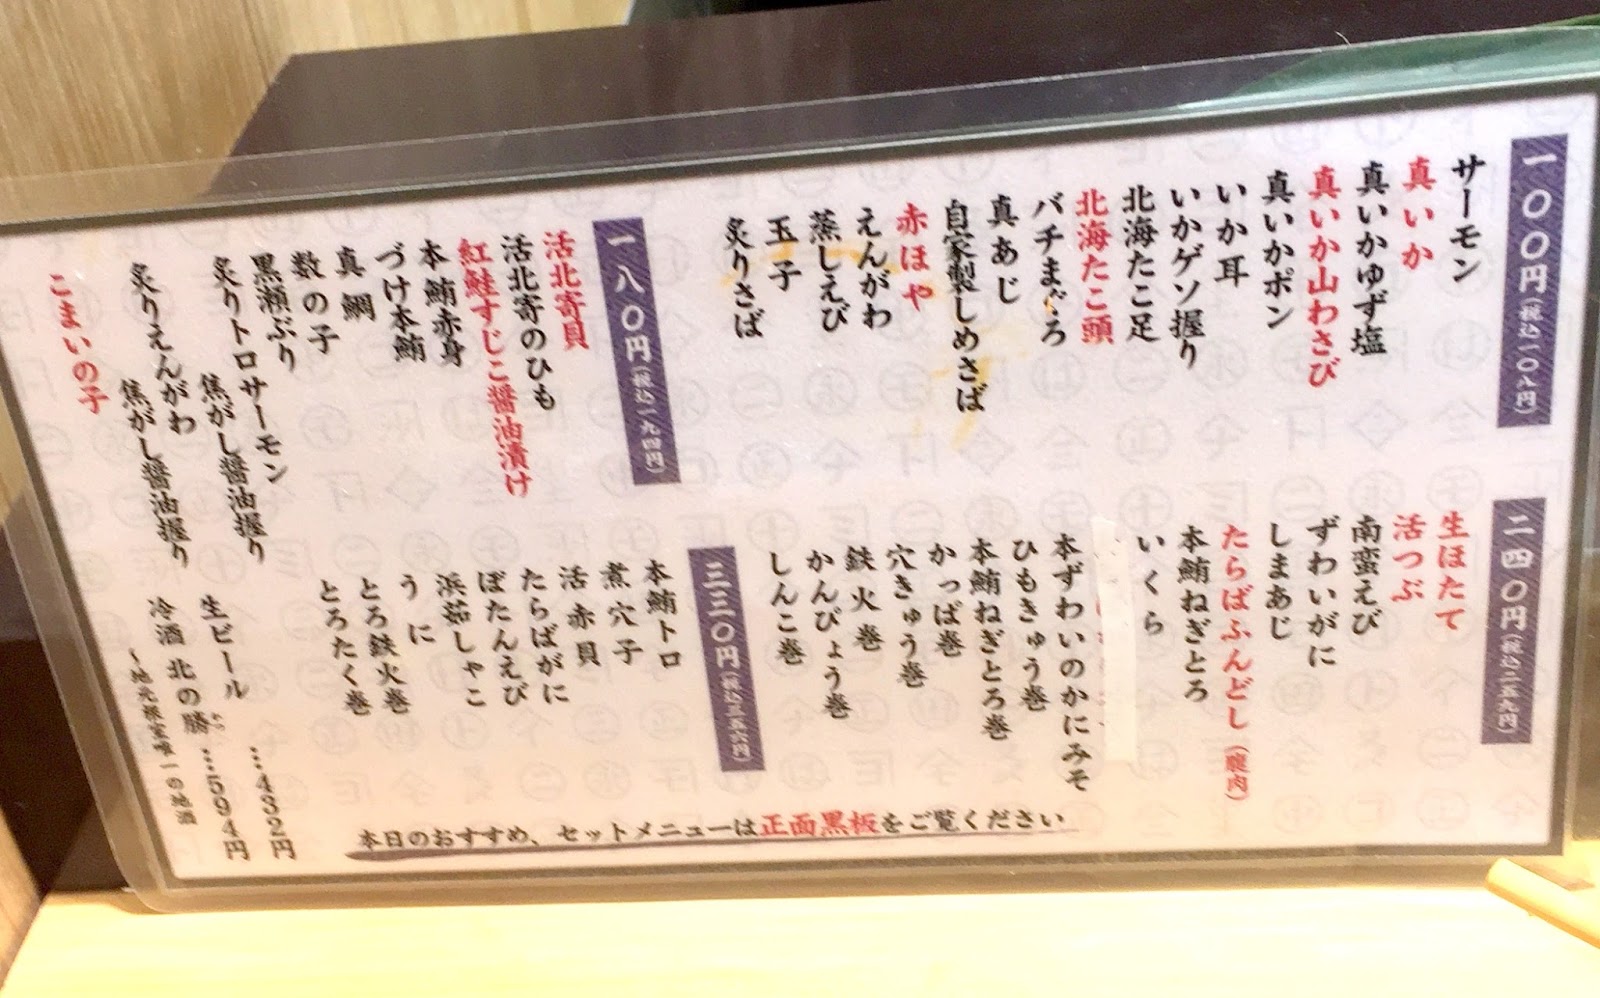 一〇〇円(税込一〇八円)
サーモン
真いか
真いかゆず塩
真いか山わさび
真いかポン
いか耳
いかゲソ握り
北海たこ足
北海たこ頭
バチまぐろ
真あじ
自家製しめさば
赤ほや
えんがわ
蒸しえび
玉子
炙りさば
一八〇円(税込一九四円)
活北寄貝
活北寄のひも
紅鮭すじこ醤油漬け
本鮪赤身
づけ本鮪
真鯛
数の子
黒瀬ぶり
炙りトロサーモン
焦がし醤油握り
炙りえんがわ
焦がし醤油握り
こまいの子
二四〇円(税込二五九円)
生ほたて
活つぶ
南蛮えび
ずわいがに
しまあじ
たらばふんどし(腹肉)
本鮪ねぎとろ
いくら
本ずわいのかにみそ
ひもきゅう巻
本鮪ねぎとろ巻
かっぱ巻
穴きゅう巻
鉄火巻
かんぴょう巻
しんこ巻
三三〇円(税込三五六円)
本鮪トロ
煮穴子
活赤貝
たらばがに
ぼたんえび
浜茹しゃこ
うに
とろ鉄火巻
とろたく巻
生ビール …432円
冷酒 北の勝 …594円
~地元根室唯一の地酒
本日のおすすめ、セットメニューは正面黒板をご覧ください